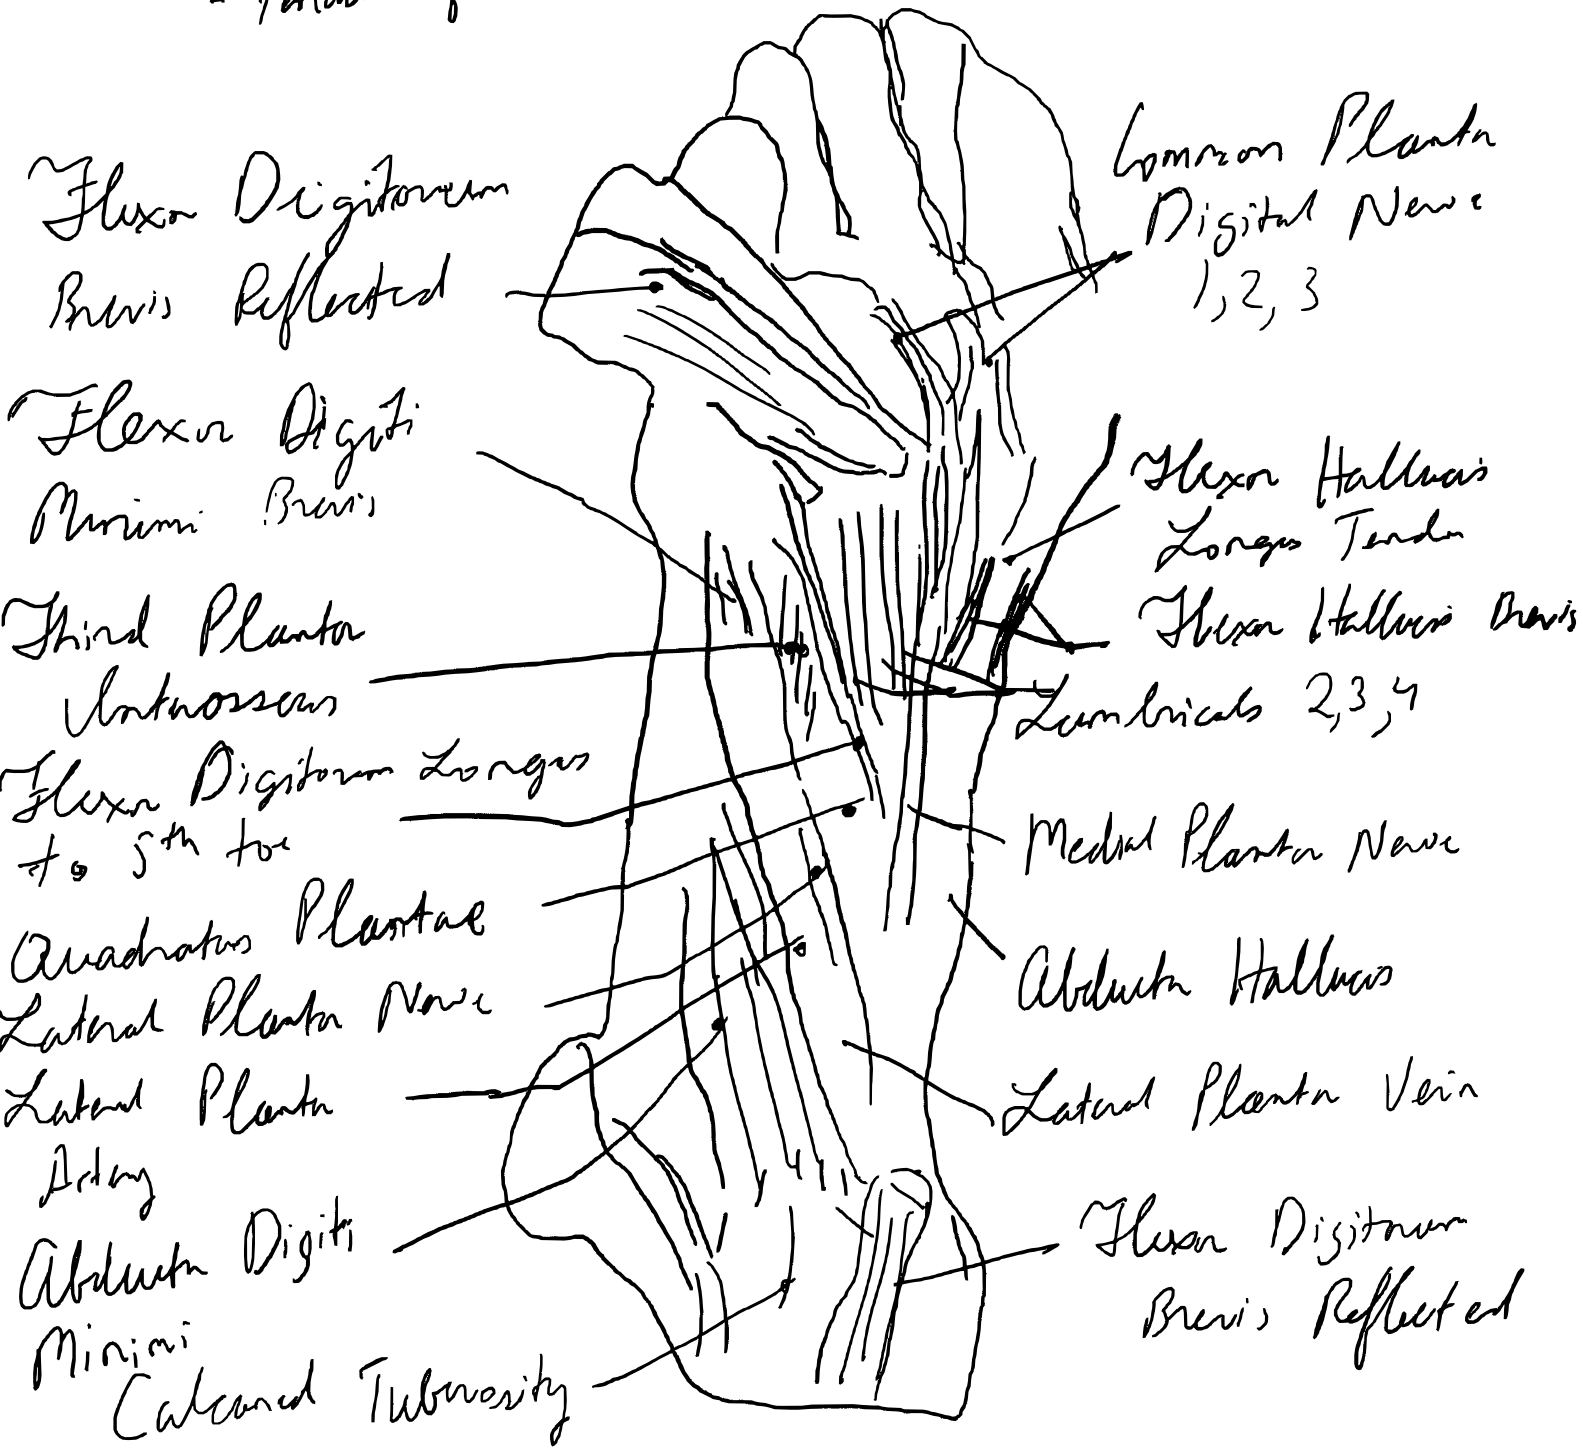 Flexor Digitorum
Brevis Reflected
Flexor Digiti
Minimi Brevis
Third Plantar
Interosseus
Flexor Digitorum Longus
to 5th toe
Quadratus Plantae
Lateral Plantar Nerve
Lateral Plantar
Artery
Abductor Digiti
Minimi
Calcaneal Tuberosity
Common Plantar
Digital Nerve
1, 2, 3
Flexor Hallucis
Longus Tendon
Flexor Hallucis Brevis
Lumbricals 2,3,4
Medial Plantar Nerve
Abductor Hallucis
Lateral Plantar Vein
Flexor Digitorum
Brevis Reflected